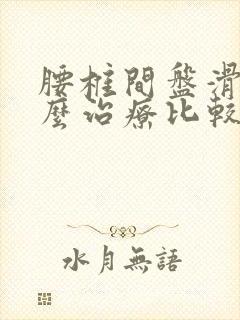 腰椎間盤滑
麼治療比較
水月無語